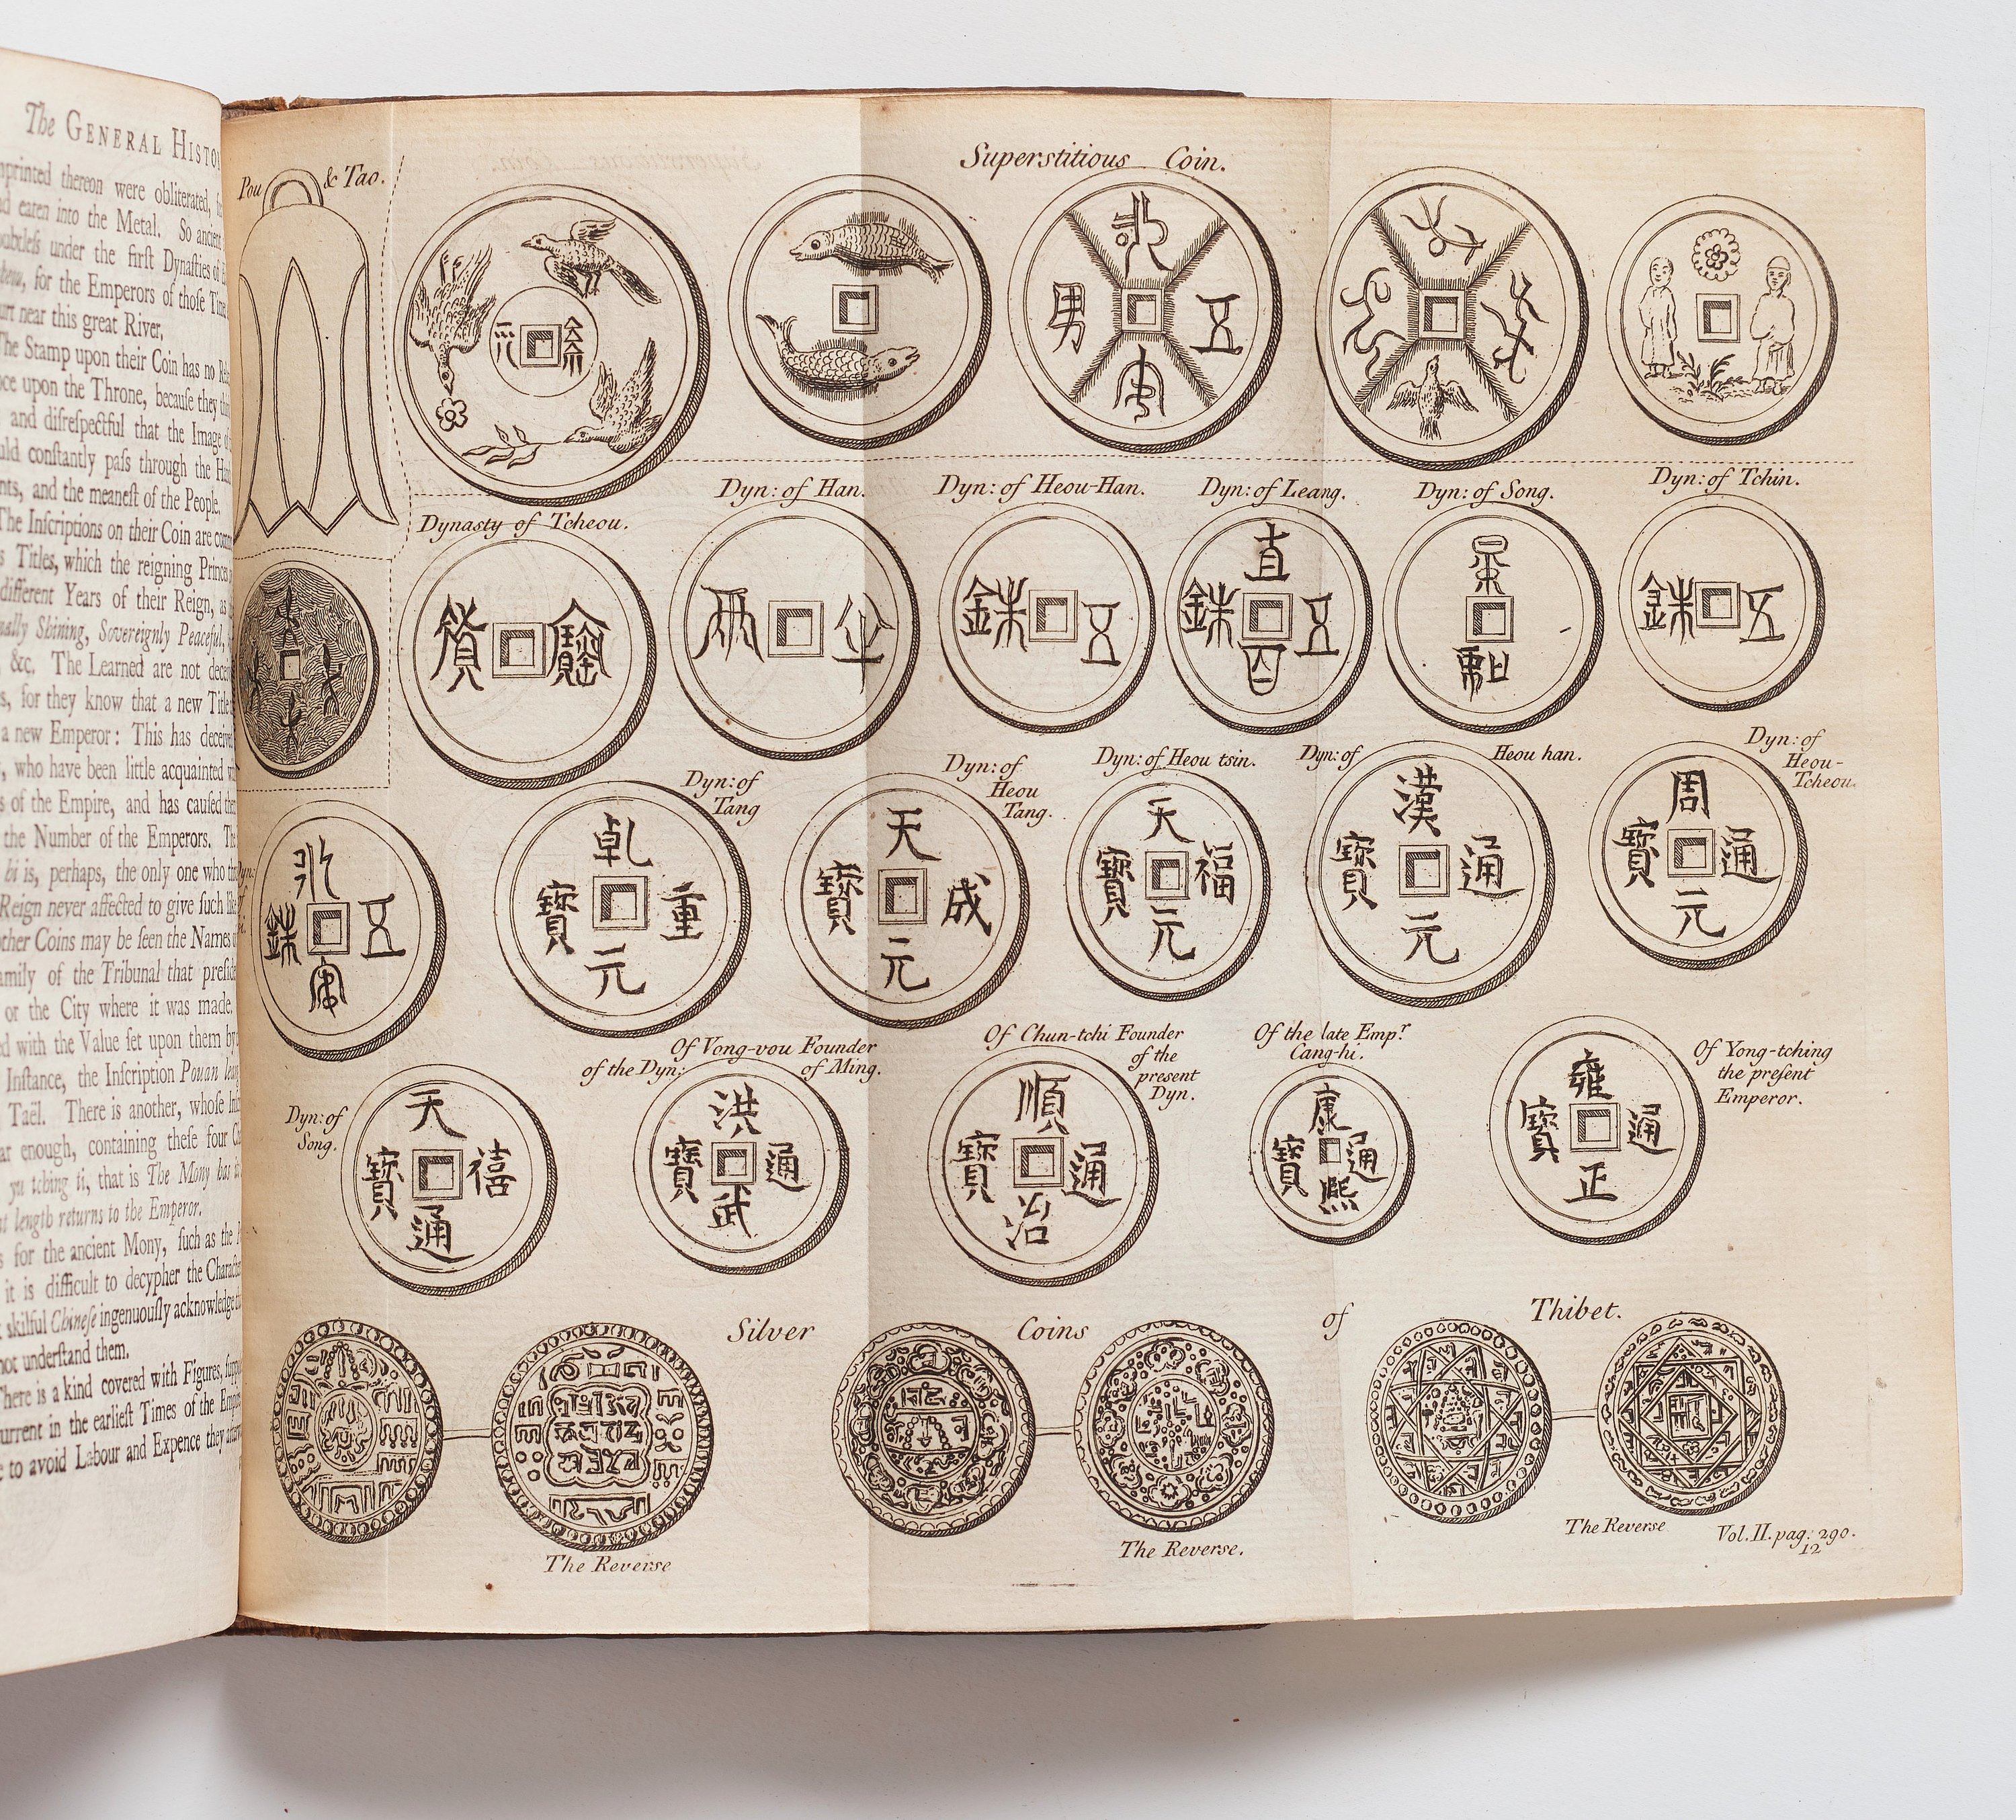 The GENERAL HISTO
mprinted thereon were obliterated,
nd eaten into the Metal. So ancient
oubtleſs under the firſt Dynaſties of
for the Emperors of thoſe Time
urt near this great River,
The Stamp upon their Coin has no
upon the Throne, becauſe they
and diſreſpectful that the Image of
uld conſtantly paſs through the Han
nts, and the meaneſt of the People.
The Inſcriptions on their Coin are com
s Titles, which the reigning Princes
different Years of their Reign, as
nally Shining, Sovereignly Peaceful,
&c. The Learned are not dece
s, for they know that a new Title
a new Emperor: This has deceiv
, who have been little acquainted
s of the Empire, and has cauſed
the Number of the Emperors. The
hi is, perhaps, the only one who
Reign never affected to give ſuch
other Coins may be ſeen the Names
amily of the Tribunal that preſide
or the City where it was made.
d with the Value ſet upon them by
Inſtance, the Inſcription Pouan leang
Taël. There is another, whoſe
ar enough, containing theſe four
yu tching ti, that is The Mony has
at length returns to the Emperor.
s for the ancient Mony, ſuch as the
it is difficult to decypher the Characte
skilful Chineſe ingenuouſly acknowledge
not underſtand them.
There is a kind covered with Figures,
urrent in the earlieſt Times of the Emp
to avoid Labour and Expence they
Pou & Tao.
Superstitious Coin.
五
男
Dynasty of Tcheou.
Dyn: of Han.
Dyn: of Heou-Han.
Dyn: of Leang.
Dyn: of Song.
Dyn: of Tchin.
寶 貨
兩
五 銖
直 五 銖
五 銖
五 銖
Dyn: of Tang
Dyn: of Heou Tang.
Dyn: of Heou tsin.
Dyn: of Heou han.
Dyn: of Heou-Tcheou.
乾 重 元 寶
天 成 元 寶
天 福 元 寶
漢 通 元 寶
周 通 元 寶
Dyn: of Song.
Of Vong-vou Founder
of the Dyn: of Ming.
Of Chun-tchi Founder
of the
present
Dyn.
Of the late Empr.
Cang-hi.
Of Yong-tching
the present
Emperor.
天 禧 通 寶
洪 武 通 寶
順 治 通 寶
康 熙 通 寶
雍 正 通 寶
Silver Coins of Thibet.
The Reverse
The Reverse.
The Reverse
Vol. II. pag: 290.
12